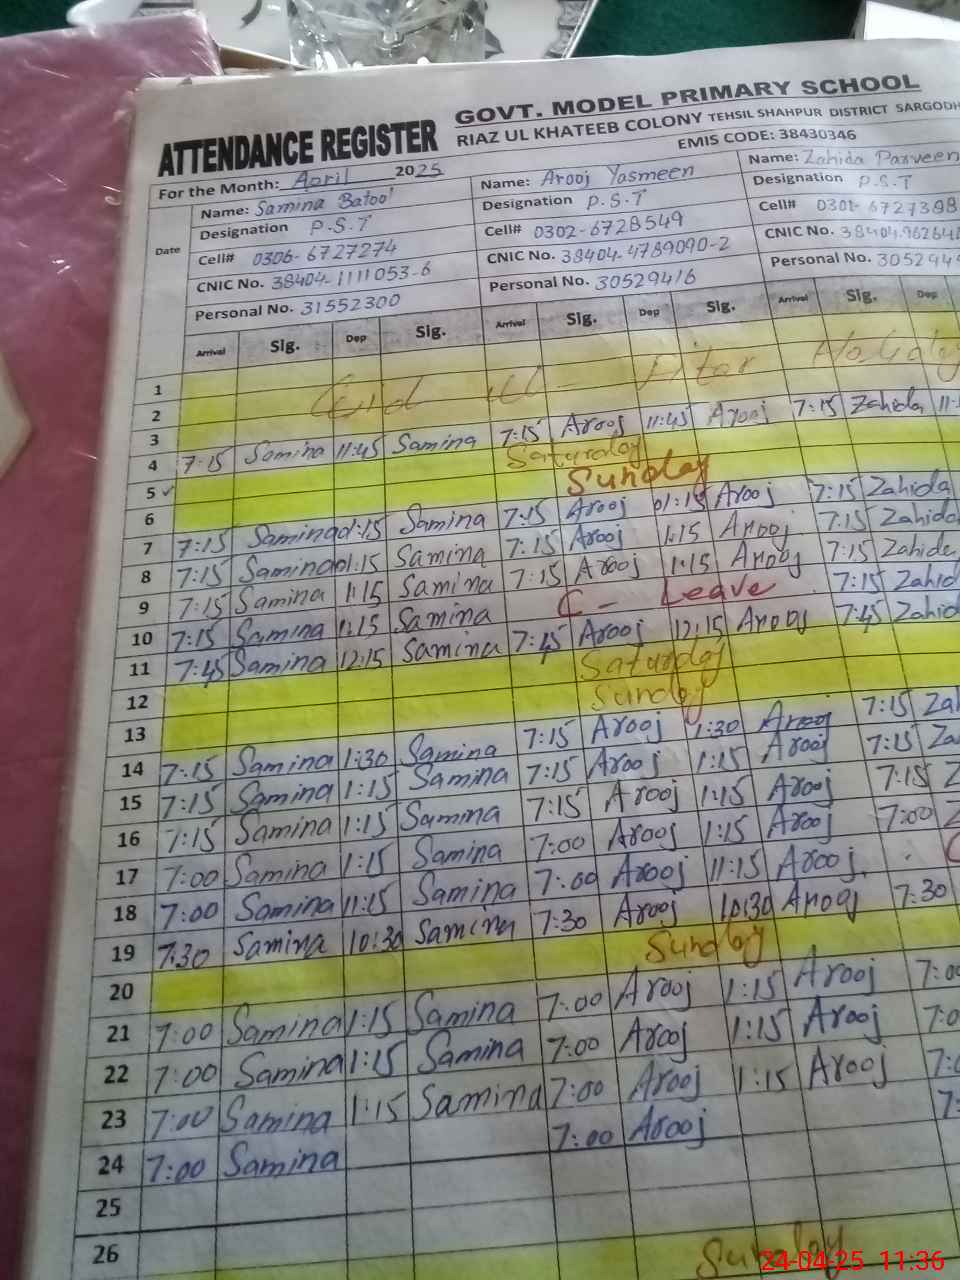 GOVT. MODEL PRIMARY SCHOOL
ATTENDANCE REGISTER RIAZ UL KHATEEB COLONY TEHSIL SHAHPUR DISTRICT SARGODH
EMIS CODE: 38430346
For the Month: April 2025
Date
Name: Samina Batool Name: Arooj Yasmeen Name: Zahida Parveen
Designation P.S.T Designation P.S.T Designation P.S.T
Cell# 0306-6727274 Cell# 0302-6728549 Cell# 0301-6727398
CNIC No. 38404-1111053-6 CNIC No. 38404-4789090-2 CNIC No. 38404-962646
Personal No. 31552300 Personal No. 30529416 Personal No. 3052949
Arrival Sig. Dep Sig. Arrival Sig. Dep Sig. Arrival Sig. Dep
1
2 Eid ul-Fitar Holiday
3
4 7:15 Samina 11:45 Samina 7:15 Arooj 11:45 Arooj 7:15 Zahida
5 ✓ Saturday
6 Sunday
7 7:15 Samina 01:15 Samina 7:15 Arooj 01:15 Arooj 7:15 Zahida
8 7:15 Samina 01:15 Samina 7:15 Arooj 1:15 Arooj 7:15 Zahida
9 7:15 Samina 1:15 Samina 7:15 Arooj 1:15 Arooj 7:15 Zahida
10 7:15 Samina 1:15 Samina C- Leave 7:15 Zahid
11 7:45 Samina 12:15 Samina 7:45 Arooj 12:15 Arooj 7:45 Zahid
12 Saturday
13 Sunday
14 7:15 Samina 1:30 Samina 7:15 Arooj 1:30 Arooj 7:15 Zah
15 7:15 Samina 1:15 Samina 7:15 Arooj 1:15 Arooj 7:15 Za
16 7:15 Samina 1:15 Samina 7:15 Arooj 1:15 Arooj 7:15 Z
17 7:00 Samina 1:15 Samina 7:00 Arooj 1:15 Arooj 7:00 Z
18 7:00 Samina 11:15 Samina 7:00 Arooj 11:15 Arooj
19 7:30 Samina 10:30 Samina 7:30 Arooj 10:30 Arooj 7:30
20 Sunday
21 7:00 Samina 1:15 Samina 7:00 Arooj 1:15 Arooj 7:00
22 7:00 Samina 1:15 Samina 7:00 Arooj 1:15 Arooj 7:0
23 7:00 Samina 1:15 Samina 7:00 Arooj 1:15 Arooj 7:0
24 7:00 Samina 7:00 Arooj 7:
25
26
Sunday
24-04-25 11:36